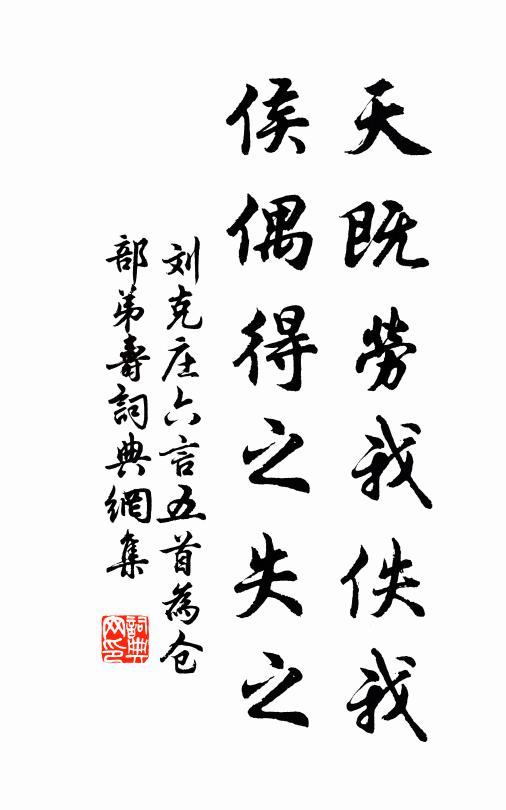 天既劳我佚我
侯偶得之失之
刘克庄六言五首为仓
部弟寿词典网集
词典
网印